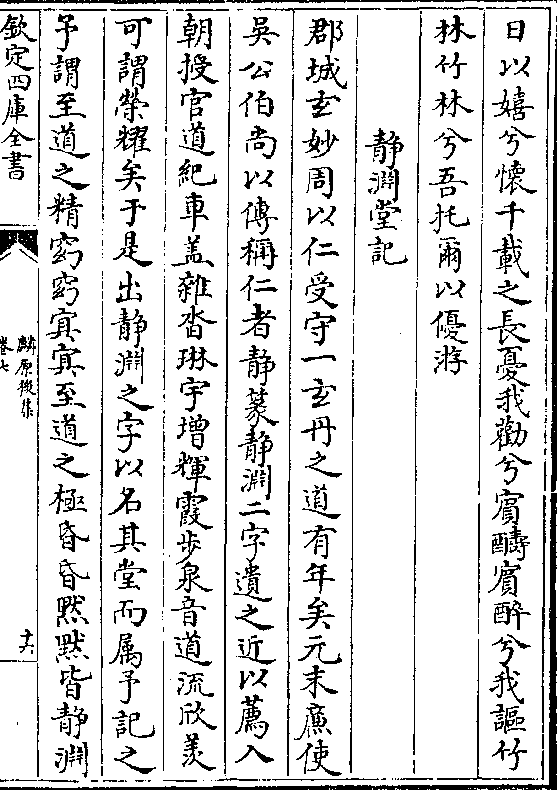 日以嬉兮懷千載之長憂我勸兮賓醻賓醉兮我謳竹
林竹林兮吾托爾以優游
静淵堂記
郡城玄妙周以仁受守一玄丹之道有年矣元末廉使
吳公伯尚以傳稱仁者静篆静淵二字遺之近以薦入
朝授官道紀車盖雜沓琳宇增輝霞步泉音道流欣羡
可謂榮耀矣于是出静淵之字以名其堂而属予記之
予謂至道之精窈窈冥冥至道之極昏昏黙黙皆静淵
欽定四庫全書
麟原後集
卷七
十六